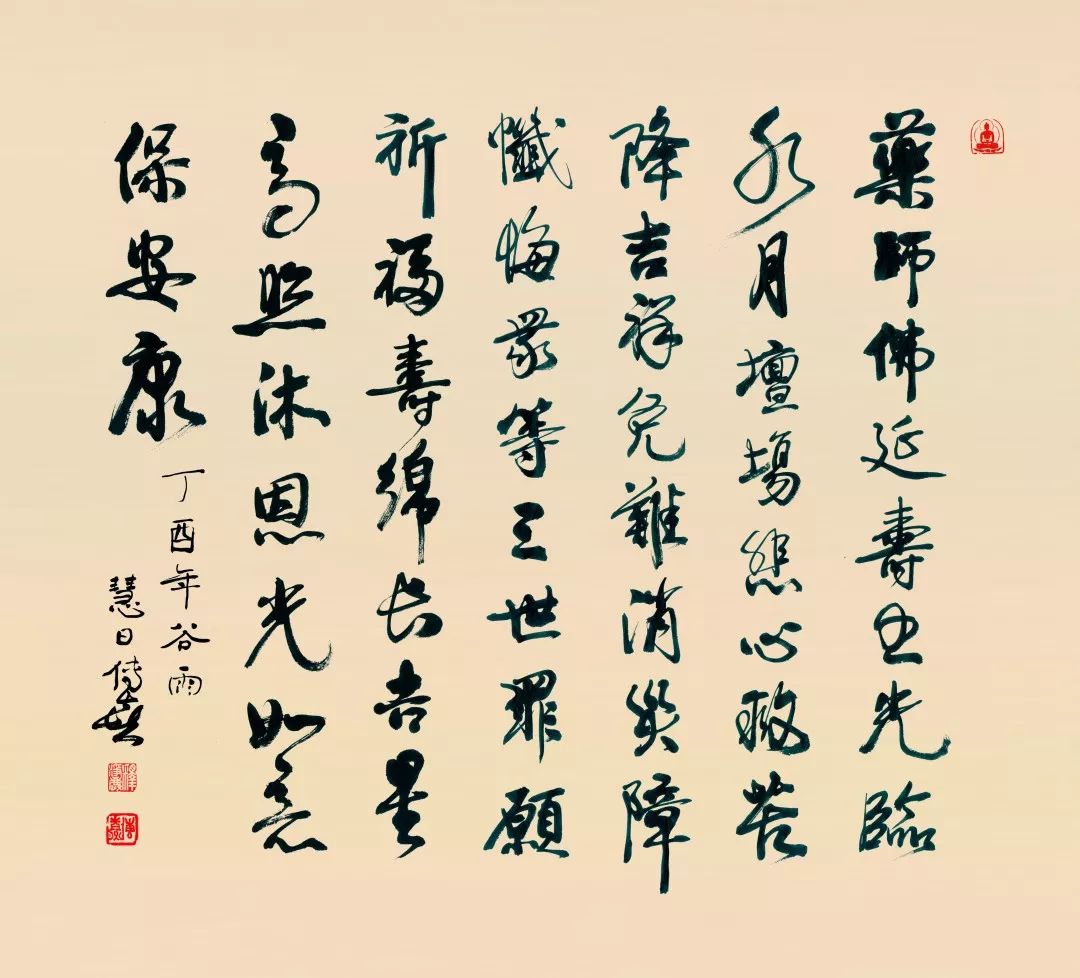 藥師佛延壽王光臨
水月壇場悲心救苦
降吉祥免難消災障
懺悔眾等三世罪願
祈福壽綿長吉星
高照沐恩光如意
保安康
丁酉年谷雨
慧日傳喜